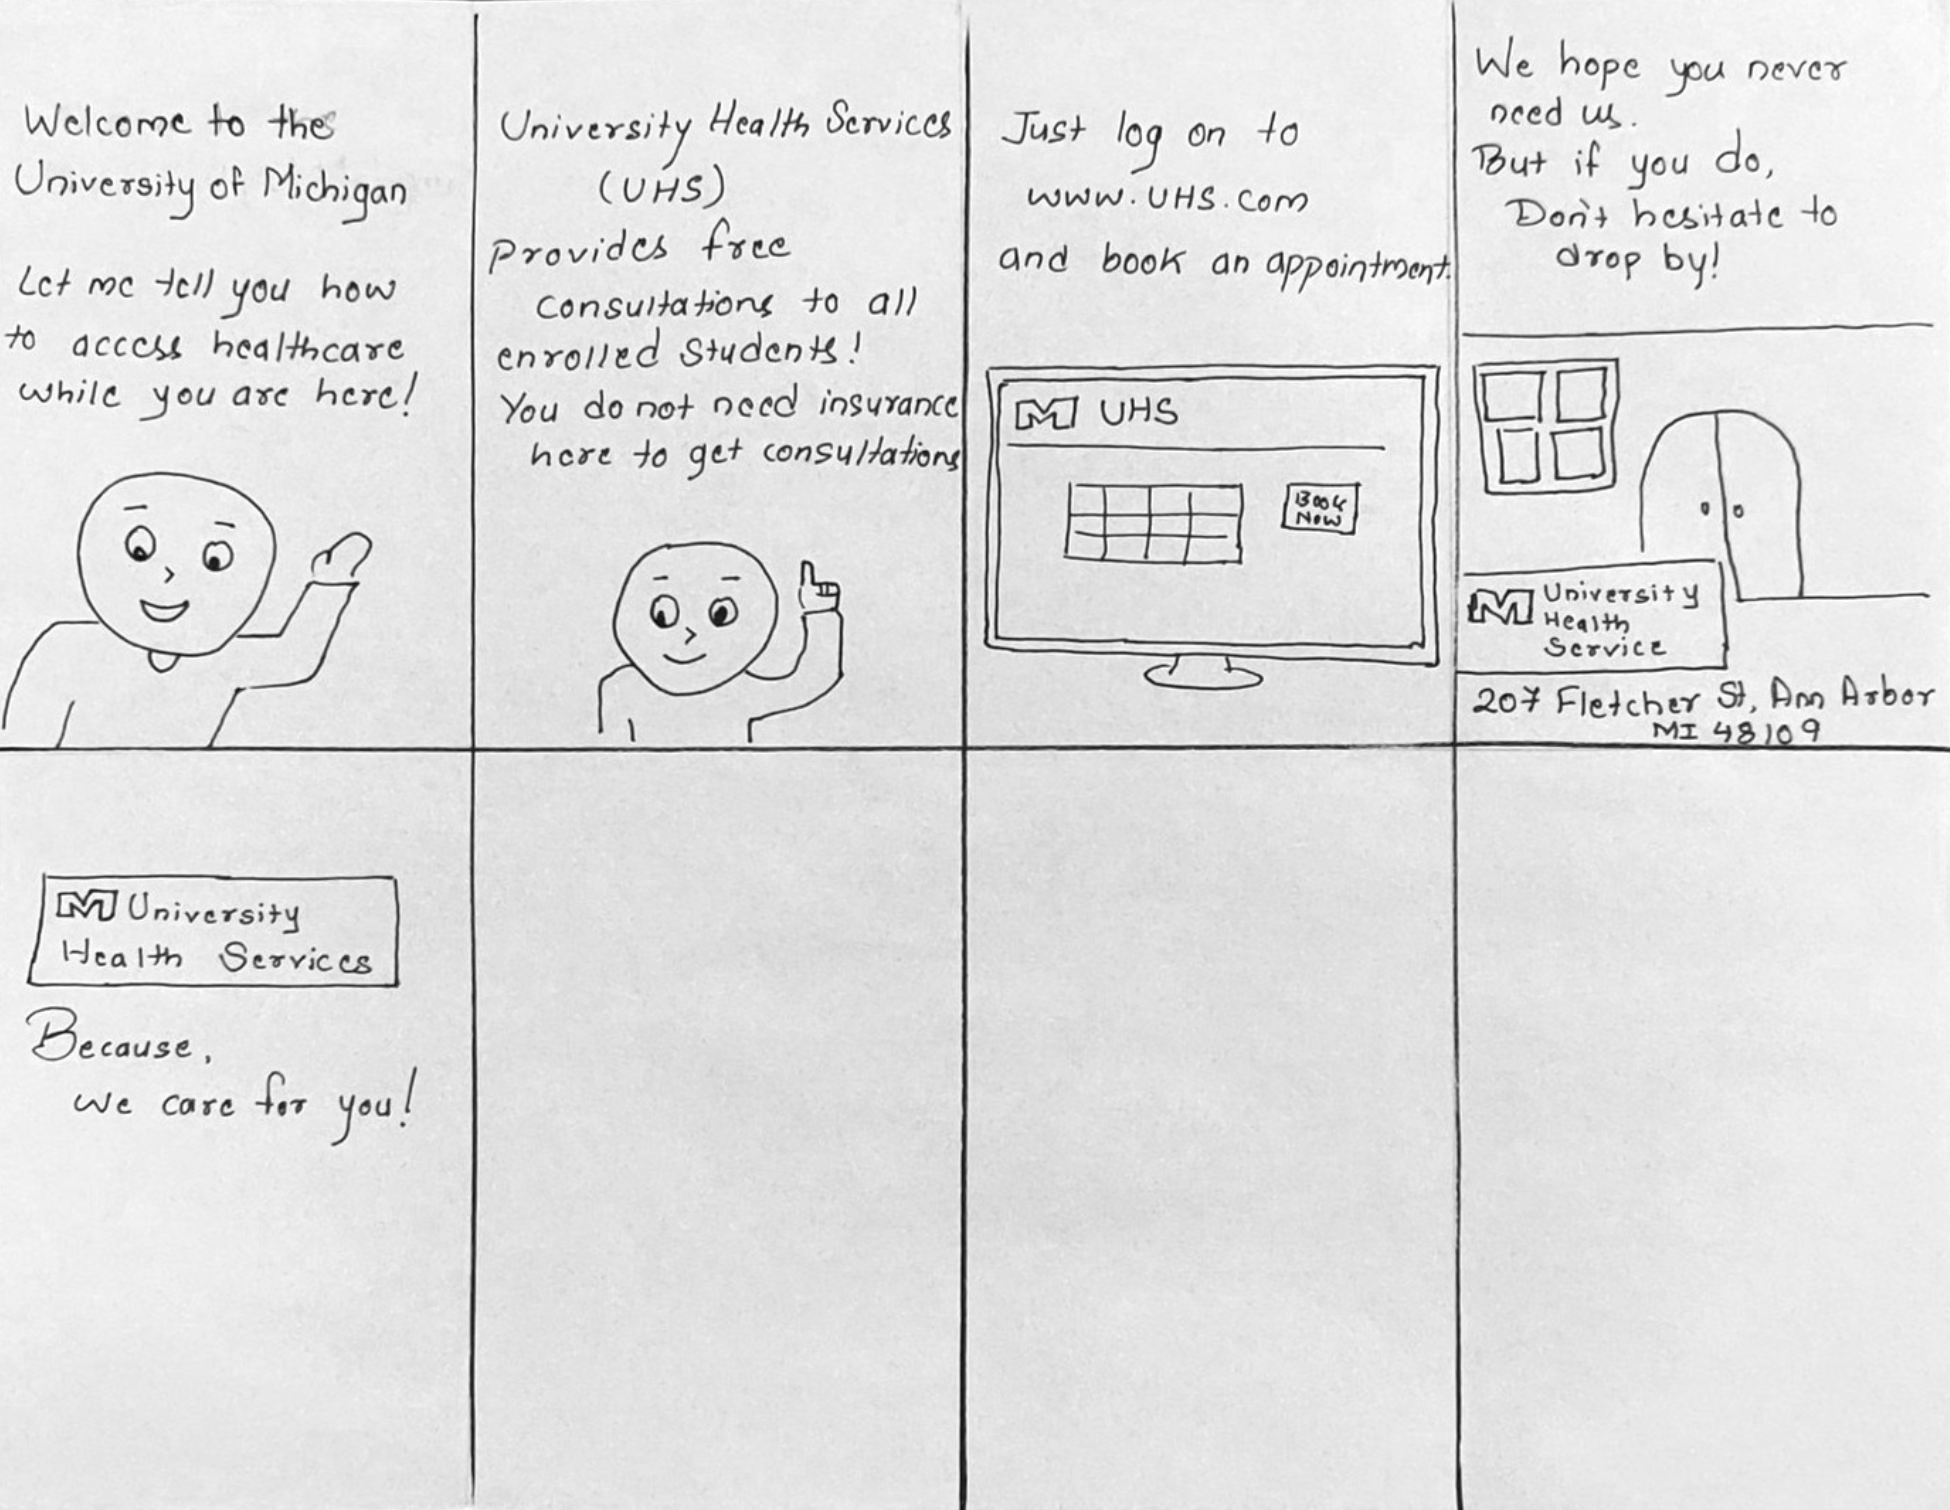 Welcome to the
University of Michigan
Let me tell you how
to access healthcare
while you are here!
University Health Services
(UHS)
Provides free
consultations to all
enrolled students!
You do not need insurance
here to get consultations
Just log on to
www.UHS.com
and book an appointment.
M UHS
Book
Now
We hope you never
need us.
But if you do,
Don't hesitate to
drop by!
M University
Health
Service
207 Fletcher St, Ann Arbor
MI 48109
M University
Health Services
Because,
we care for you!